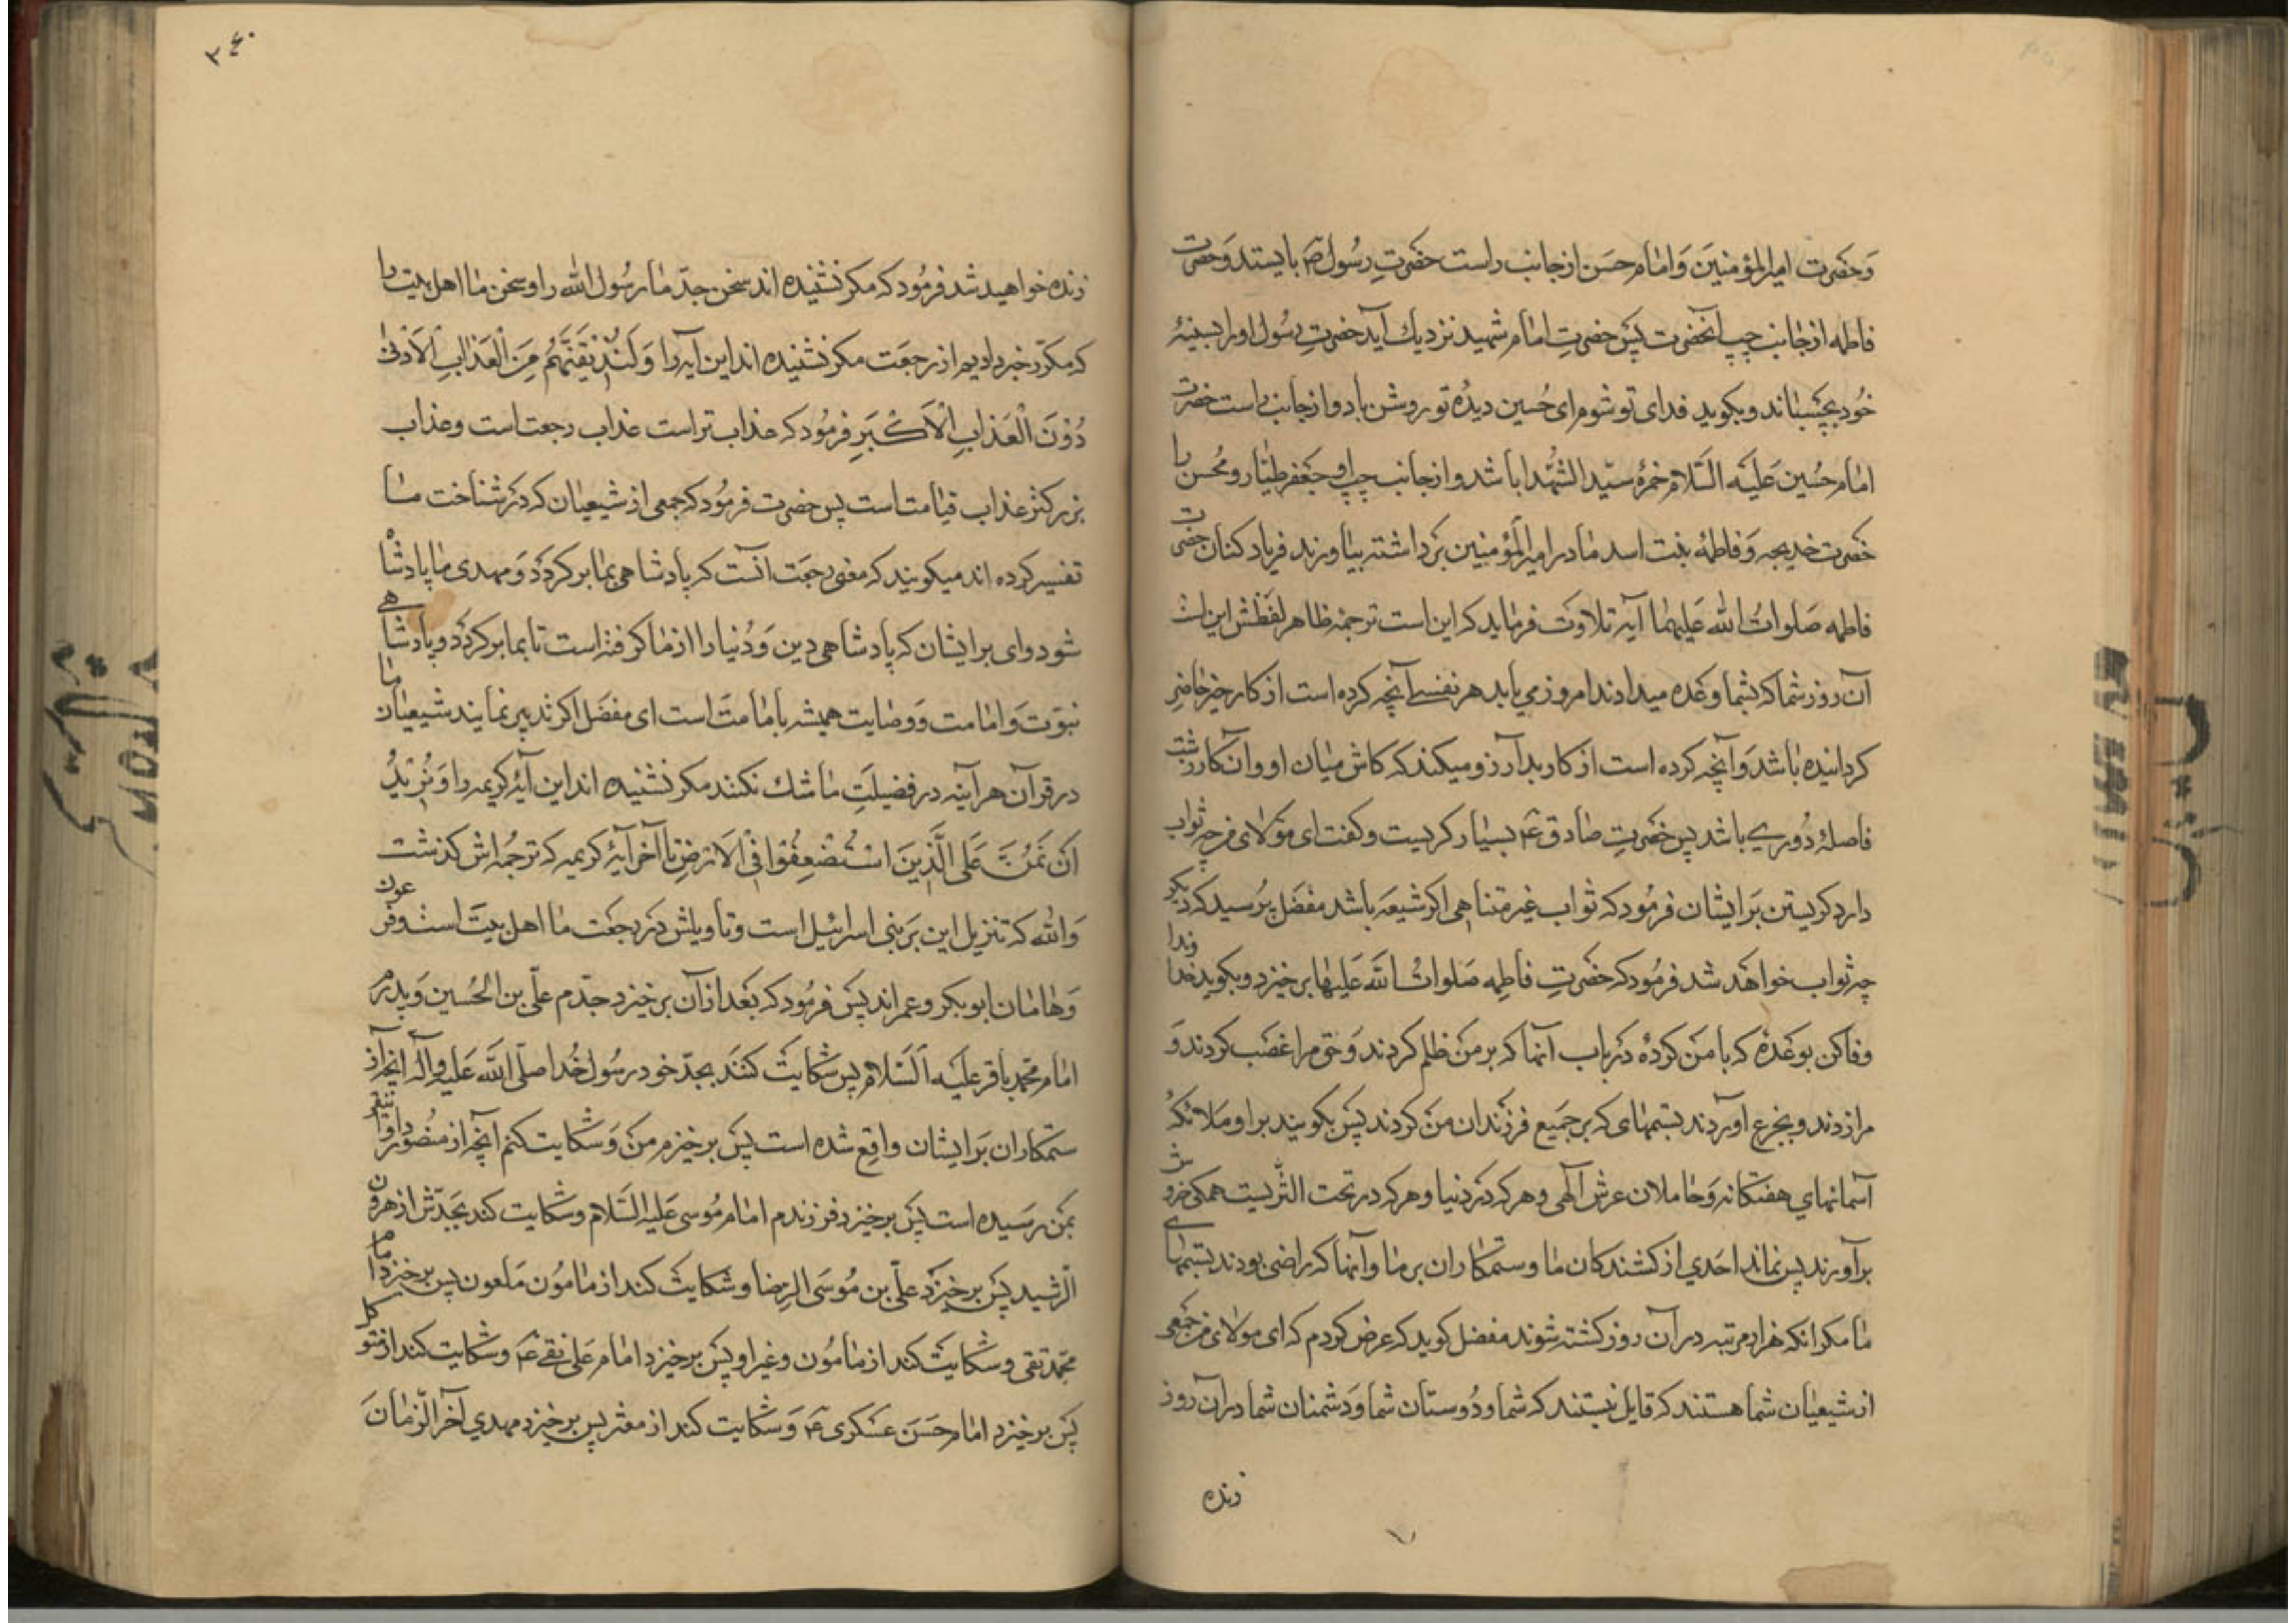 وحضرت امیرالمؤمنین وامام حسن ازجانب راست حضرت رسول ص بایستد وحضرت
فاطمه ازجانب چپ آنحضرت پس حضرت امام شهید نزدیك آید حضرت رسول اورا بسینهٔ
خود بچسباند وبکوید فدای تو شوم ای حسین دیدهٔ تو روشن باد وازجانب راست حضرت
امام حسین علیه السلام حمزهٔ سید الشهدا باشد وازجانب چپ او جعفر طیار ومحسن را
حضرت خدیجه وفاطمهٔ بنت اسد مادر امیرالمؤمنین برداشته بیاورند فریاد کنان حضرت
فاطمه صلوات الله علیهما آیه تلاوت فرماید که این است ترجمهٔ ظاهر لفظش این است
آن روز شما که بشما وعده میدادند امروز می یابد هر نفسے آنچه کرده است از کار خیر حاضر
کردانیده باشد وآنچه کرده است از کار بد آرزو میکند که کاش میان او وآن کار زشت
فاصلهٔ دورے باشد پس حضرت صادق ع بسیار کریست وکفت ای مولای من چه ثواب
دارد کریستن بر ایشان فرمود که ثواب غیر متناهی اکر شیعه باشد مفضل پرسید که دیکر
چه ثواب خواهد شد فرمود که حضرت فاطمه صلوات الله علیها برخیزد وبکوید خداوندا
وفا کن بوعدهٔ که با من کردهٔ در باب آنها که بر من ظلم کردند وحق مرا غصب کردند و
مرا زدند وبجزع آوردند بستمهای که بر جمیع فرزندان من کردند پس بکریند بر او ملائکهٔ
آسمانهای هفتکانه وحاملان عرش الهی وهر که در دنیا وهر که در تحت الثری است همکی خروش
برآورند پس نماند احدی از کشندکان ما وستمکاران بر ما وآنها که راضی بودند بستمهاے
ما مکر آنکه هزار مرتبه در آن روز کشته شوند مفضل کوید که عرض کردم که ای مولای من جمعی
از شیعیان شما هستند که قایل نیستند که شما ودوستان شما ودشمنان شما در آن روز
زنده
۳۴۰
زنده خواهید شد فرمود که مکر نشنیده اند سخن جد ما رسول الله را وسخن ما اهل بیت را
که مکرر خبر دادیم از رجعت مکر نشنیده اند این آیه را وَلَنُذِیقَنَّهُم مِنَ الْعَذَابِ الْاَدْنیٰ
دُوْنَ الْعَذَابِ الْاَكْبَرِ فرمود که عذاب تراست عذاب رجعت است وعذاب
بزرکتر عذاب قیامت است پس حضرت فرمود که جمعی از شیعیان که در شناخت ما
تفسیر کرده اند میکویند که معنی رجعت آنست که پادشاهی بما برکردد ومهدی ما پادشاه
شود وای بر ایشان که پادشاهی دین ودنیا را از ما کرفته است تا بما برکردد وپادشاهے
نبوت وامامت ووصایت همیشه با ما مت است ای مفضل اکر تدبیر نمایند شیعیان ما
در قرآن هر آینه در فضیلت ما شك نکنند مکر نشنیده اند این آیهٔ کریمه را وَنُرِیْدُ
اَنْ نَمُنَّ عَلَی الَّذِینَ اسْتُضْعِفُوْا فِی الْاَرْضِ تا آخر آیهٔ کریمه که ترجمه اش کذشت
والله که تنزیل این بر بنی اسرائیل است وتأویلش در رجعت ما اهل بیت است وفرعون
وهامان ابوبکر وعمراند پس فرمود که بعد از آن برخیزد جدم علی بن الحسین وپدرم
امام محمد باقر علیه السلام پس شکایت کنند بجد خود رسول خدا صلی الله علیه وآله آنچه از
ستمکاران بر ایشان واقع شده است پس برخیزم من وشکایت کنم آنچه از منصور دوانقی
بمن رسیده است پس برخیزد فرزندم امام موسی علیه السلام وشکایت کند بجدش از هرون
الرشید پس برخیزد علی بن موسی الرضا وشکایت کند از مامون ملعون پس برخیزد امام
محمد تقی وشکایت کند از مامون وغیر او پس برخیزد امام علی نقے ع وشکایت کند از متوکل
پس برخیزد امام حسن عسکری ع وشکایت کند از معتز پس برخیزد مهدی آخر الزمان